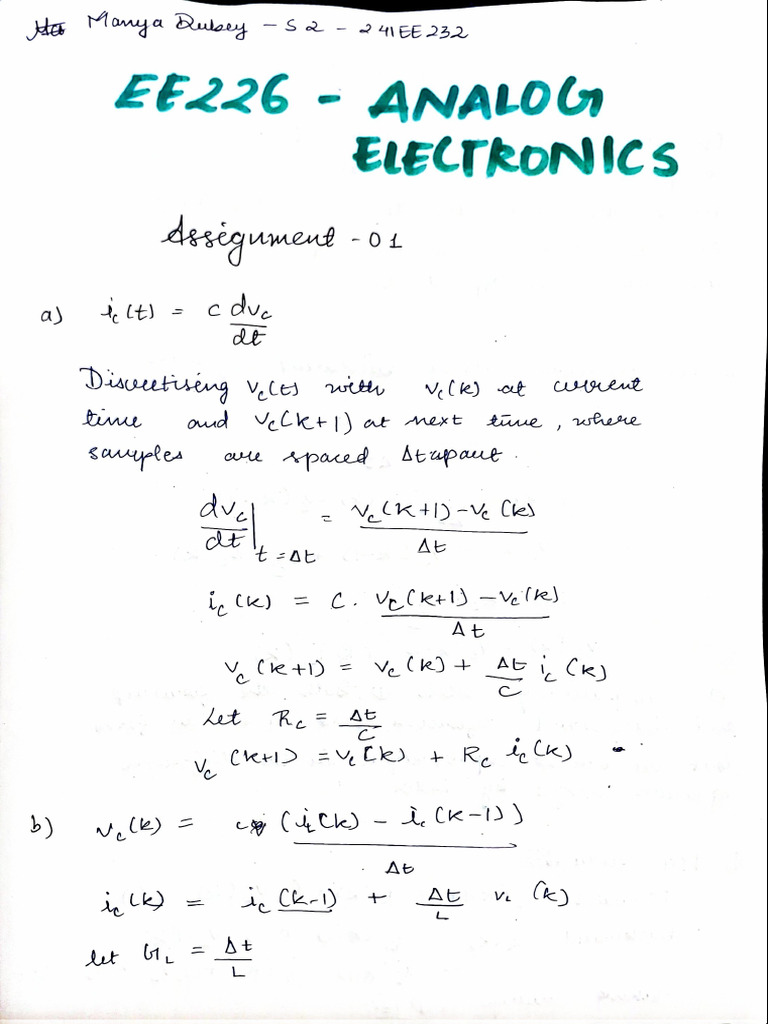 Manya Dubey - S2 - 241EE232
EE226 - ANALOG
ELECTRONICS
Assignment - 01
a) i_c(t) = C dv_c/dt
Discretising v_c(t) with v_c(k) at current
time and v_c(k+1) at next time, where
samples are spaced Δt apart.
dv_c/dt |_{t=Δt} = (v_c(k+1) - v_c(k))/Δt
i_c(k) = C. (v_c(k+1) - v_c(k))/Δt
v_c(k+1) = v_c(k) + Δt/C i_c(k)
Let R_c = Δt/C
v_c(k+1) = v_c(k) + R_c i_c(k)
b) v_c(k) = (i_L(k) - i_c(k-1))/Δt
i_c(k) = i_c(k-1) + Δt/L v_L(k)
let G_L = Δt/L